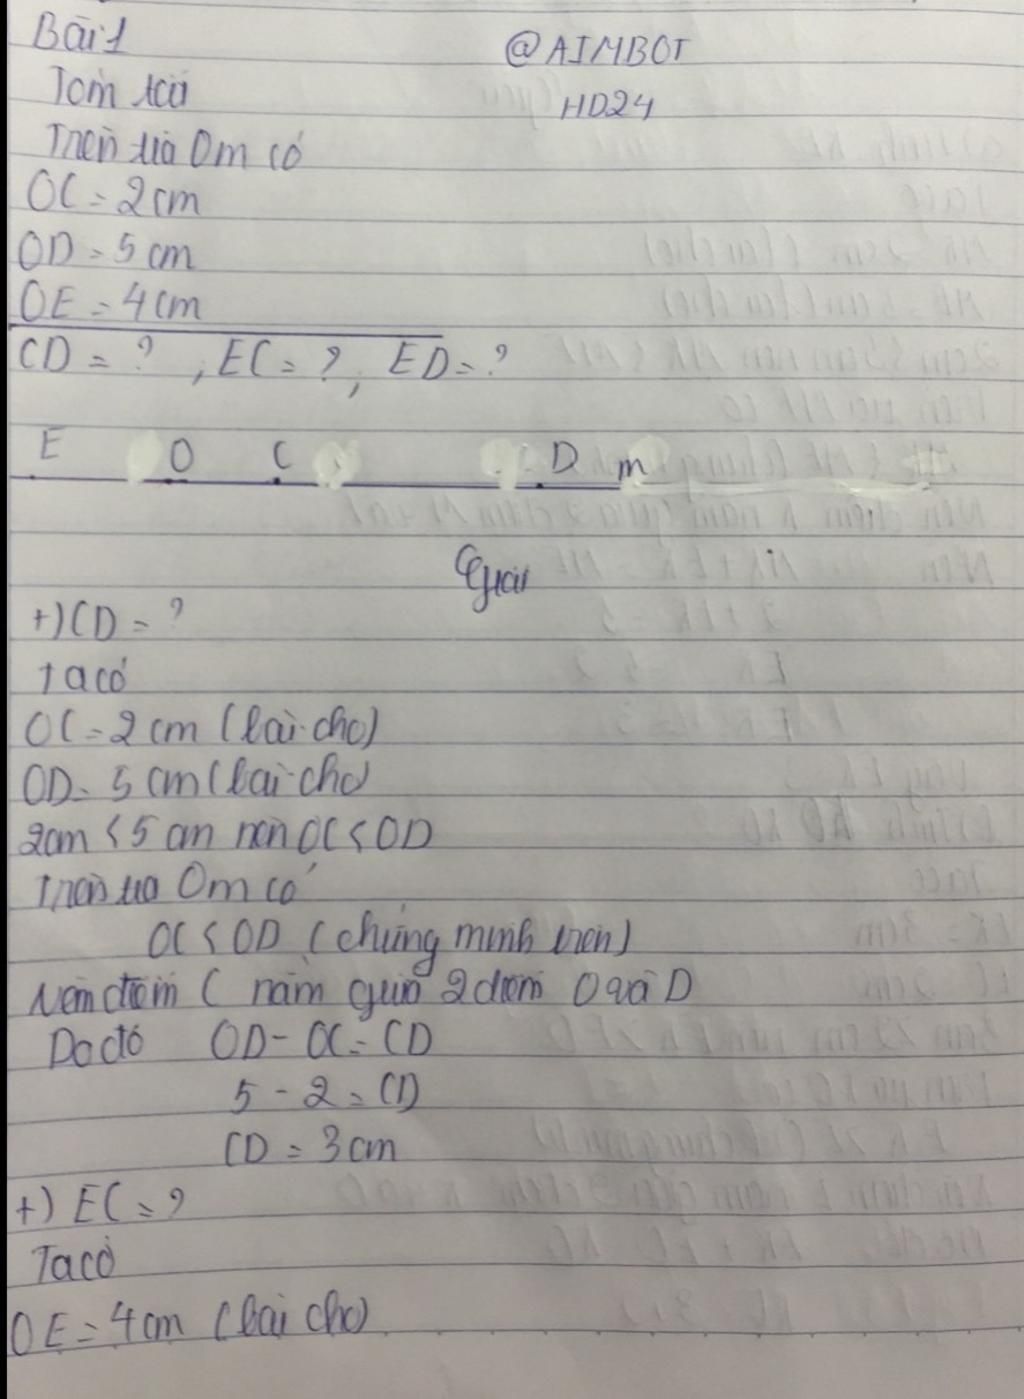 Bài 1
@AIMBOT
HD24
Tóm tắt
Trên tia Om có
OC = 2cm
OD = 5cm
OE = 4cm
CD = ? , EC = ? , ED = ?
E O C D m
Giải
+) CD = ?
Ta có
OC = 2cm (bài cho)
OD = 5cm (bài cho)
2cm < 5cm nên OC < OD
Trên tia Om có
OC < OD (chứng minh trên)
Nên điểm C nằm giữa 2 điểm O và D
Do đó OD - OC = CD
5 - 2 = CD
CD = 3cm
+) EC = ?
Ta có
OE = 4cm (bài cho)